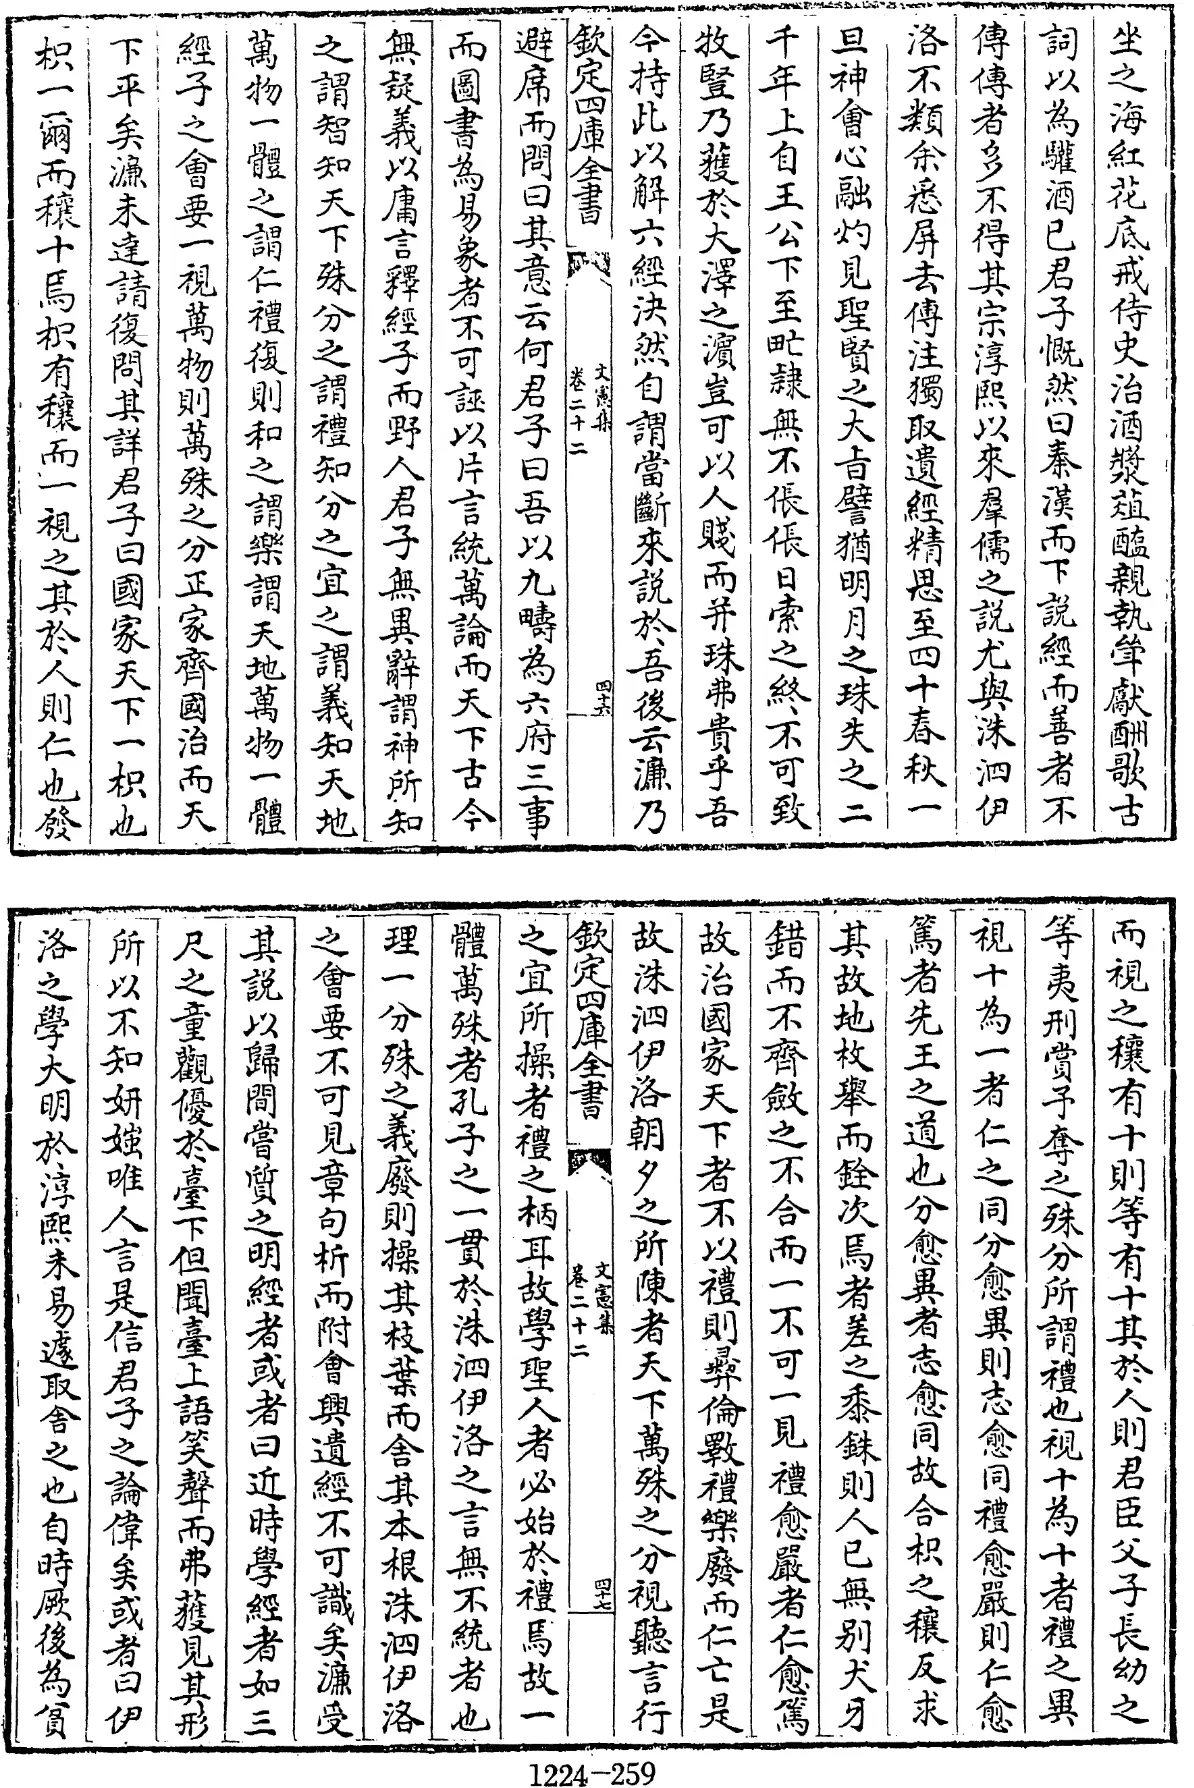 坐之海紅花底戒侍史治酒漿葅醢親執斝獻酬歌古
詞以為驩酒已君子慨然曰秦漢而下説經而善者不
傳傳者多不得其宗淳熙以來羣儒之説尤與洙泗伊
洛不類余悉屏去傳注獨取遺經精思至四十春秋一
旦神會心融灼見聖賢之大㫖譬猶明月之珠失之二
千年上自王公下至甿隷無不倀倀日索之終不可致
牧豎乃䕶於大澤之濵豈可以人賤而并珠弗貴乎吾
今持此以解六經決然自謂當斷來説於吾後云濂乃
欽定四庫全書
文憲集
卷二十二
四十六
避席而問曰其意云何君子曰吾以九疇為六府三事
而圖書為易象者不可誣以片言統萬論而天下古今
無疑義以庸言釋經子而野人君子無異辭謂神所知
之謂智知天下殊分之謂禮知分之宜之謂義知天地
萬物一體之謂仁禮復則和之謂樂謂天地萬物一體
經子之會要一視萬物則萬殊之分正家齊國治而天
下平矣濂未達請復問其詳君子曰國家天下一枳也
枳一爾而穰十焉枳有穰而一視之其於人則仁也發
而視之穰有十則等有十其於人則君臣父子長幼之
等夷刑賞予奪之殊分所謂禮也視十為十者禮之異
視十為一者仁之同分愈異則志愈同禮愈嚴則仁愈
篤者先王之道也分愈異者志愈同故合枳之穰反求
其故地枚舉而銓次焉者差之黍銖則人已無別犬牙
錯而不齊斂之不合而一不可一見禮愈嚴者仁愈篤
故治國家天下者不以禮則彛倫斁禮樂廢而仁亡是
故洙泗伊洛朝夕之所陳者天下萬殊之分視聽言行
欽定四庫全書
文憲集
卷二十二
四十七
之宜所操者禮之柄耳故學聖人者必始於禮焉故一
體萬殊者孔子之一貫於洙泗伊洛之言無不統者也
理一分殊之義廢則操其枝葉而舍其本根洙泗伊洛
之會要不可見章句析而附會興遺經不可識矣濂受
其説以歸間嘗質之明經者或者曰近時學經者如三
尺之童觀優於臺下但聞臺上語笑聲而弗䕶見其形
所以不知妍媸唯人言是信君子之論偉矣或者曰伊
洛之學大明於淳熙未易遽取舍之也自時厥後為貧
1224-259